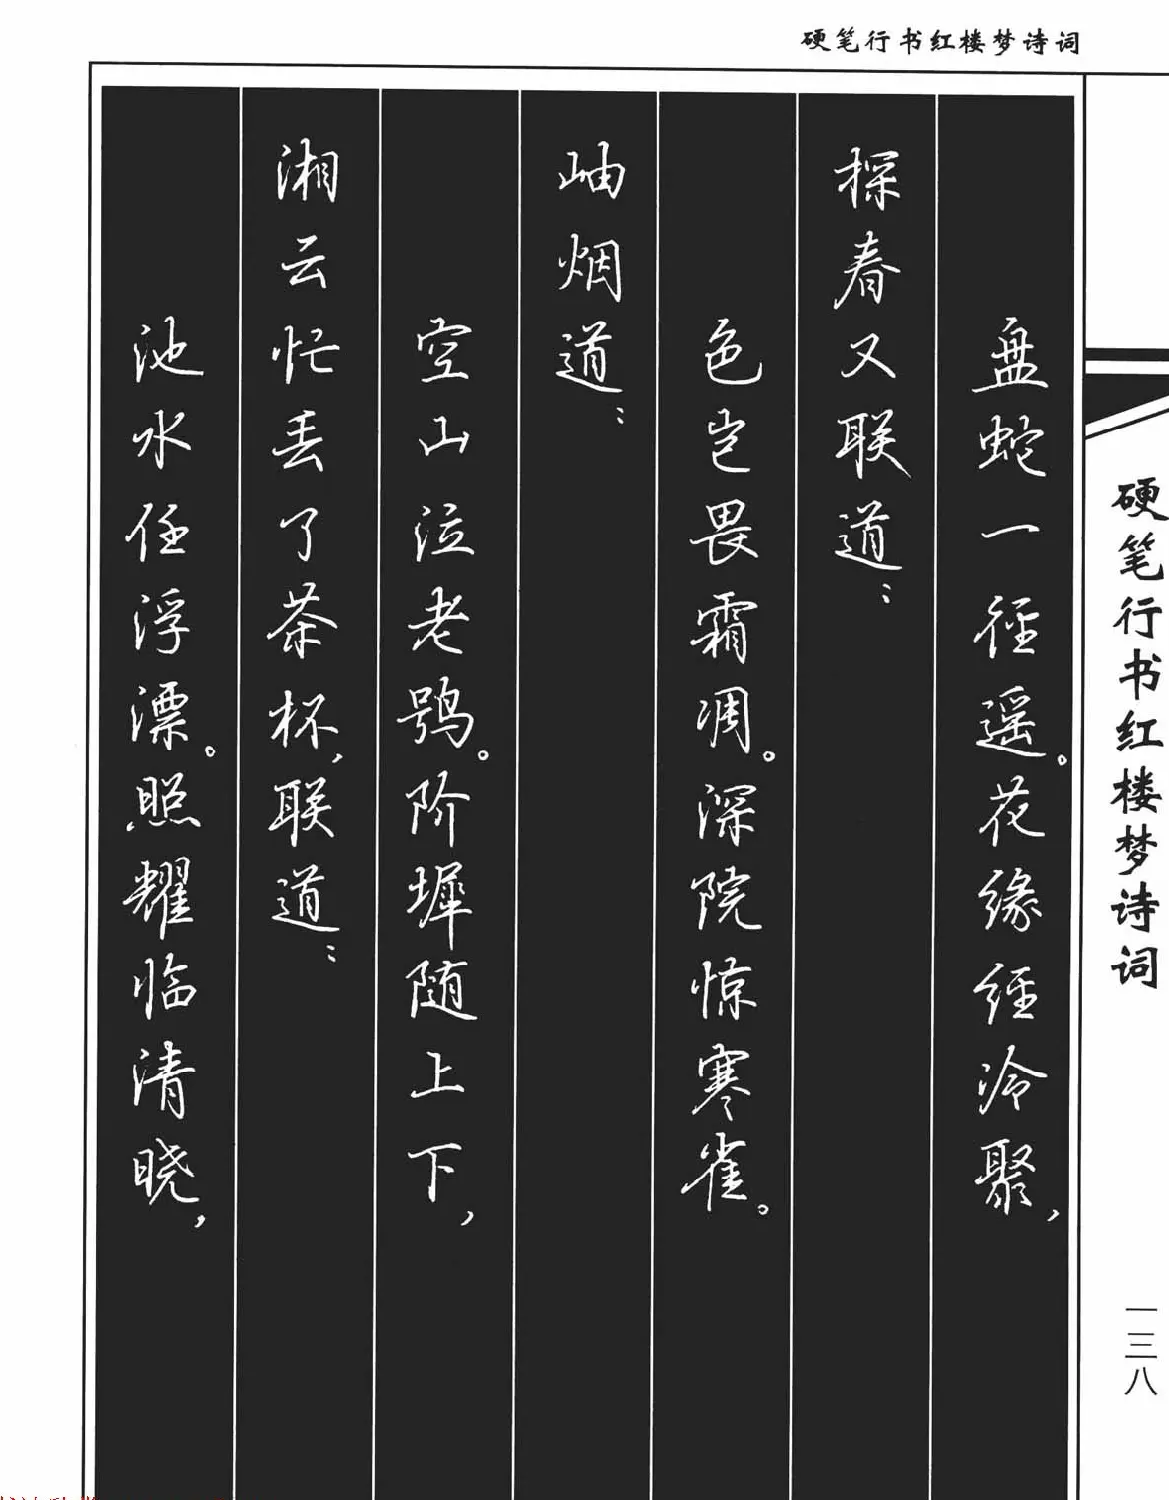 硬笔行书红楼梦诗词
盘蛇一径遥。花缘经冷聚，
探春又联道：
色岂畏霜凋。深院惊寒雀。
岫烟道：
空山泣老鸮。阶墀随上下，
湘云忙丢了茶杯，联道：
池水任浮漂。照耀临清晓，
硬笔行书红楼梦诗词
一三八